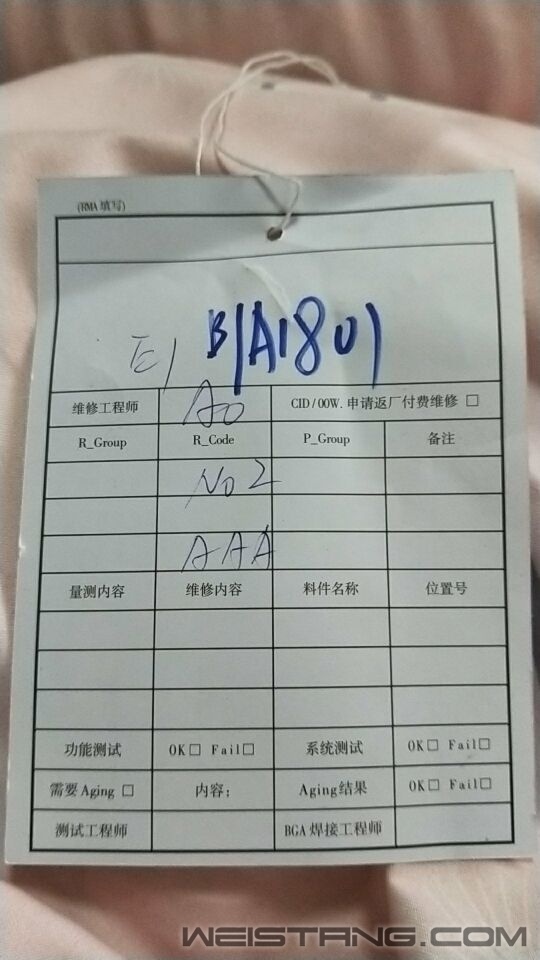 (RMA 填写)
E/ B/A1801
维修工程师 A0 CID/OOW.申请返厂付费维修 □
R_Group R_Code P_Group 备注
No2
AAA
量测内容 维修内容 料件名称 位置号
功能测试 OK□ Fail□ 系统测试 OK□ Fail□
需要Aging □ 内容: Aging结果 OK□ Fail□
测试工程师 BGA 焊接工程师
WEISTANG.COM